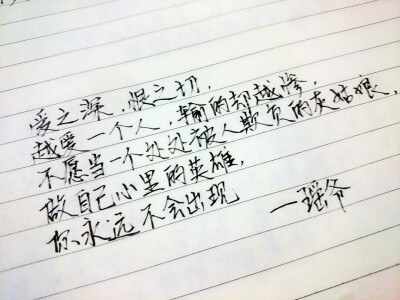 爱之深,恨之切,
越爱一个人,输的却越惨,
不愿当一个处处被人欺负的灰姑娘,
做自己心里的英雄,
你永远不会出现
一瑶爷